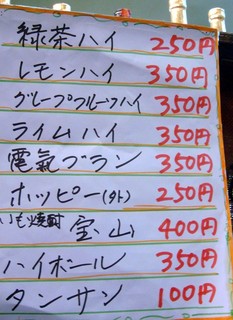 緑茶ハイ 250円
レモンハイ 350円
グレープフルーツハイ 350円
ライムハイ 350円
電氣ブラン 350円
ホッピー(外) 250円
いも焼酎 宝山 400円
ハイボール 350円
タンサン 100円